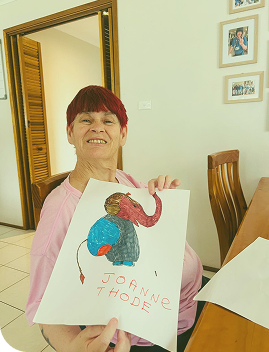 JOANNE
THODE